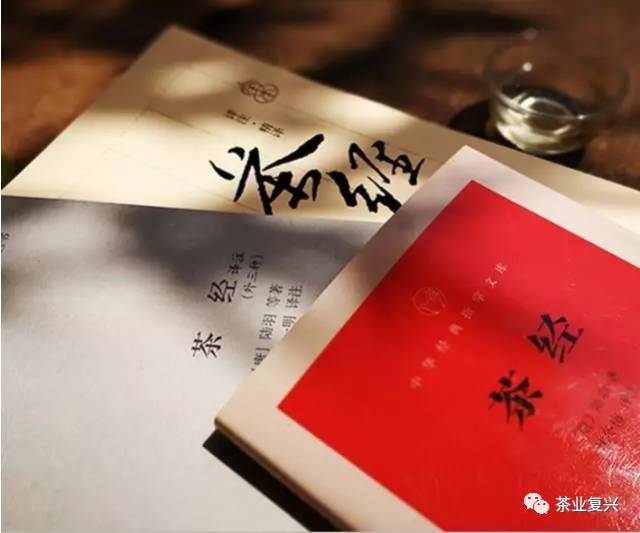 茶经
茶经 译注
(外三种)
[唐] 陆羽 等著
明 译注
中华经典指掌文库
茶经
茶业复兴